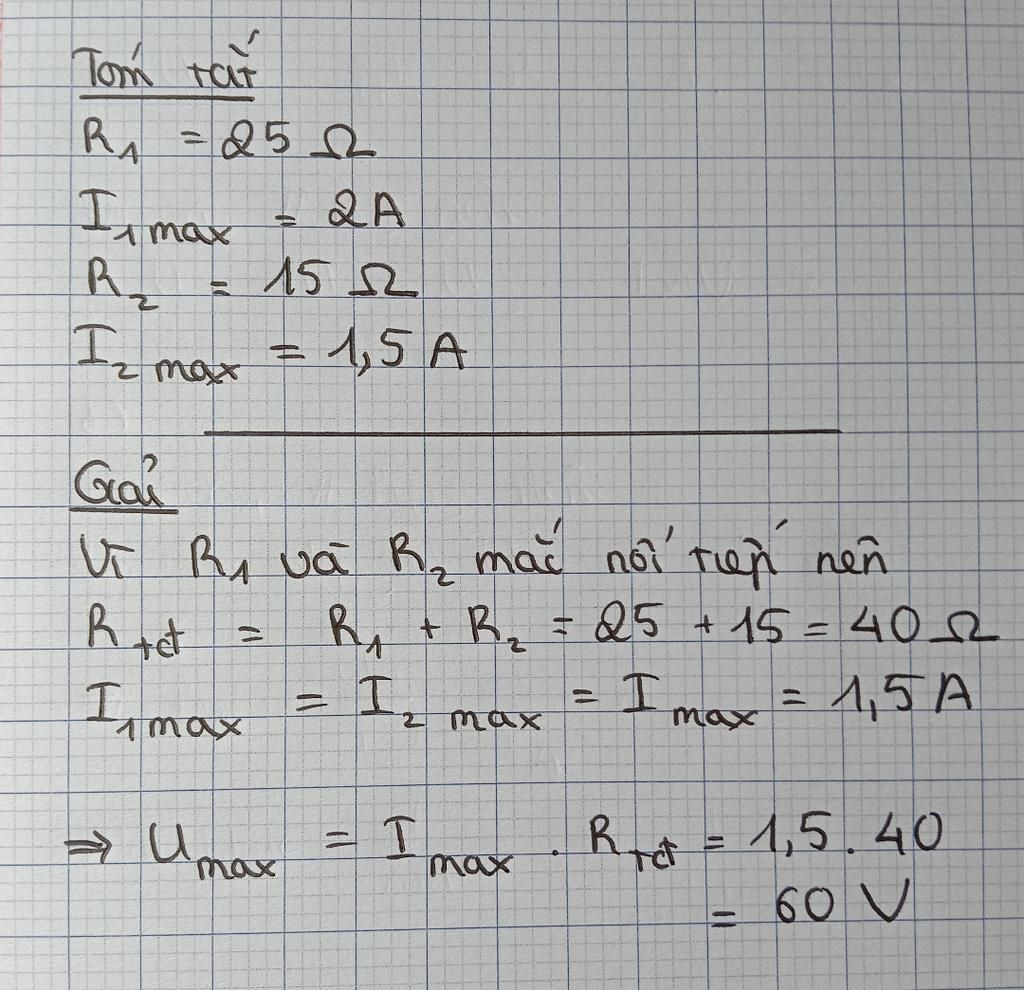 Tóm tắt
R₁ = 25 Ω
I₁ max = 2A
R₂ = 15 Ω
I₂ max = 1,5 A
Giải
Vì R₁ và R₂ mắc nối tiếp nên
R tđ = R₁ + R₂ = 25 + 15 = 40 Ω
I₁ max = I₂ max = I max = 1,5 A
⇒ U max = I max . R tđ = 1,5 . 40
= 60 V